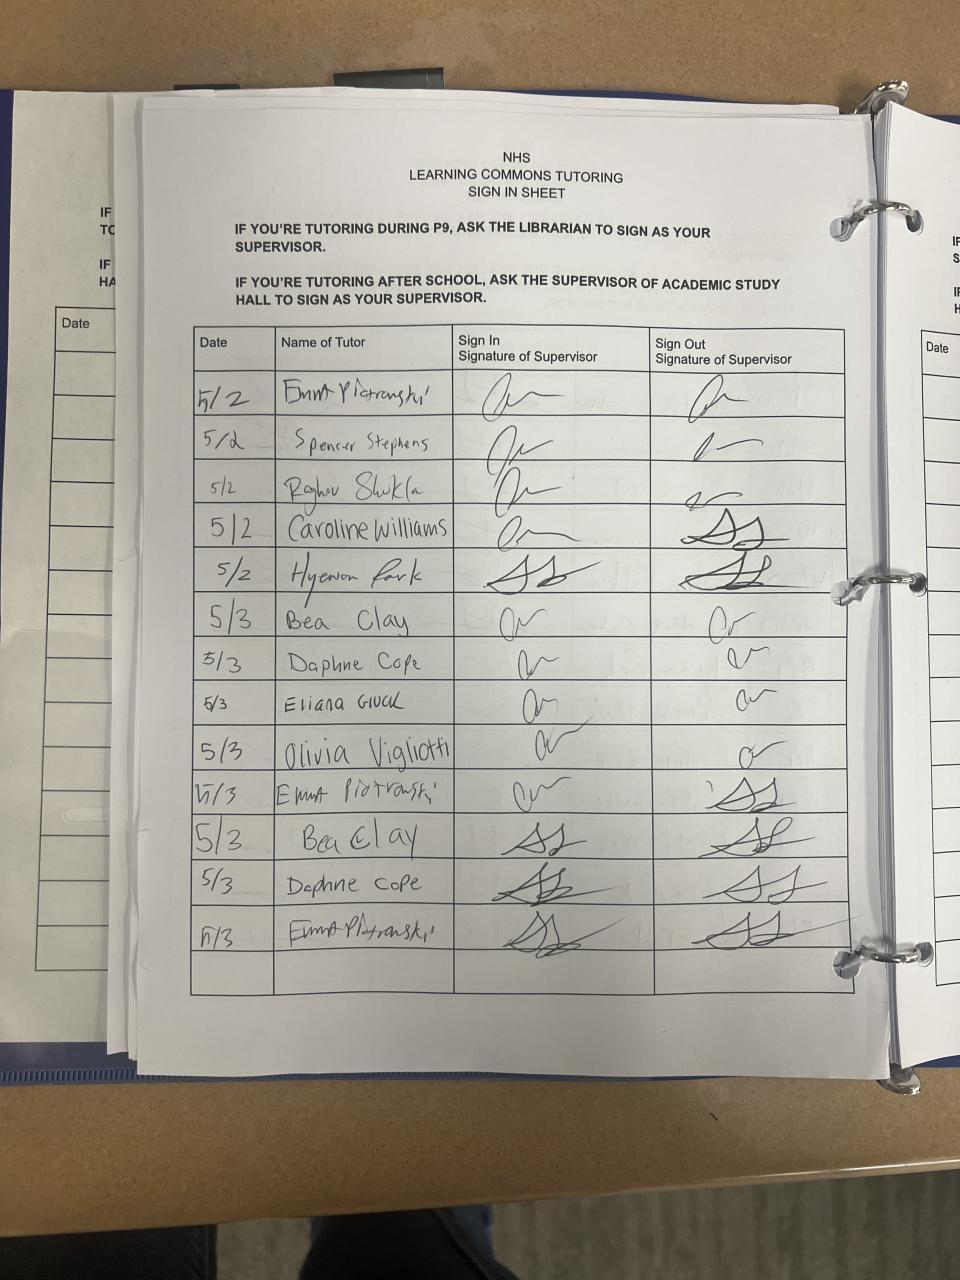 NHS
LEARNING COMMONS TUTORING
SIGN IN SHEET
IF YOU'RE TUTORING DURING P9, ASK THE LIBRARIAN TO SIGN AS YOUR
SUPERVISOR.
IF YOU'RE TUTORING AFTER SCHOOL, ASK THE SUPERVISOR OF ACADEMIC STUDY
HALL TO SIGN AS YOUR SUPERVISOR.
Date Name of Tutor Sign In Sign Out
Signature of Supervisor Signature of Supervisor
5/2 Piotrowski
5/2 Spencer Stephens
5/2 Raghav Shukla
5/2 Caroline Williams
5/2 Hyewon Park
5/3 Bea Clay
5/3 Daphne Cope
5/3 Eliana Gluck
5/3 Olivia Vigliotti
5/3 Piotrowski
5/3 Bea Clay
5/3 Daphne Cope
5/3 Piotrowski
IF
TO
IF
HA
Date
IF
S
IF
H
Date